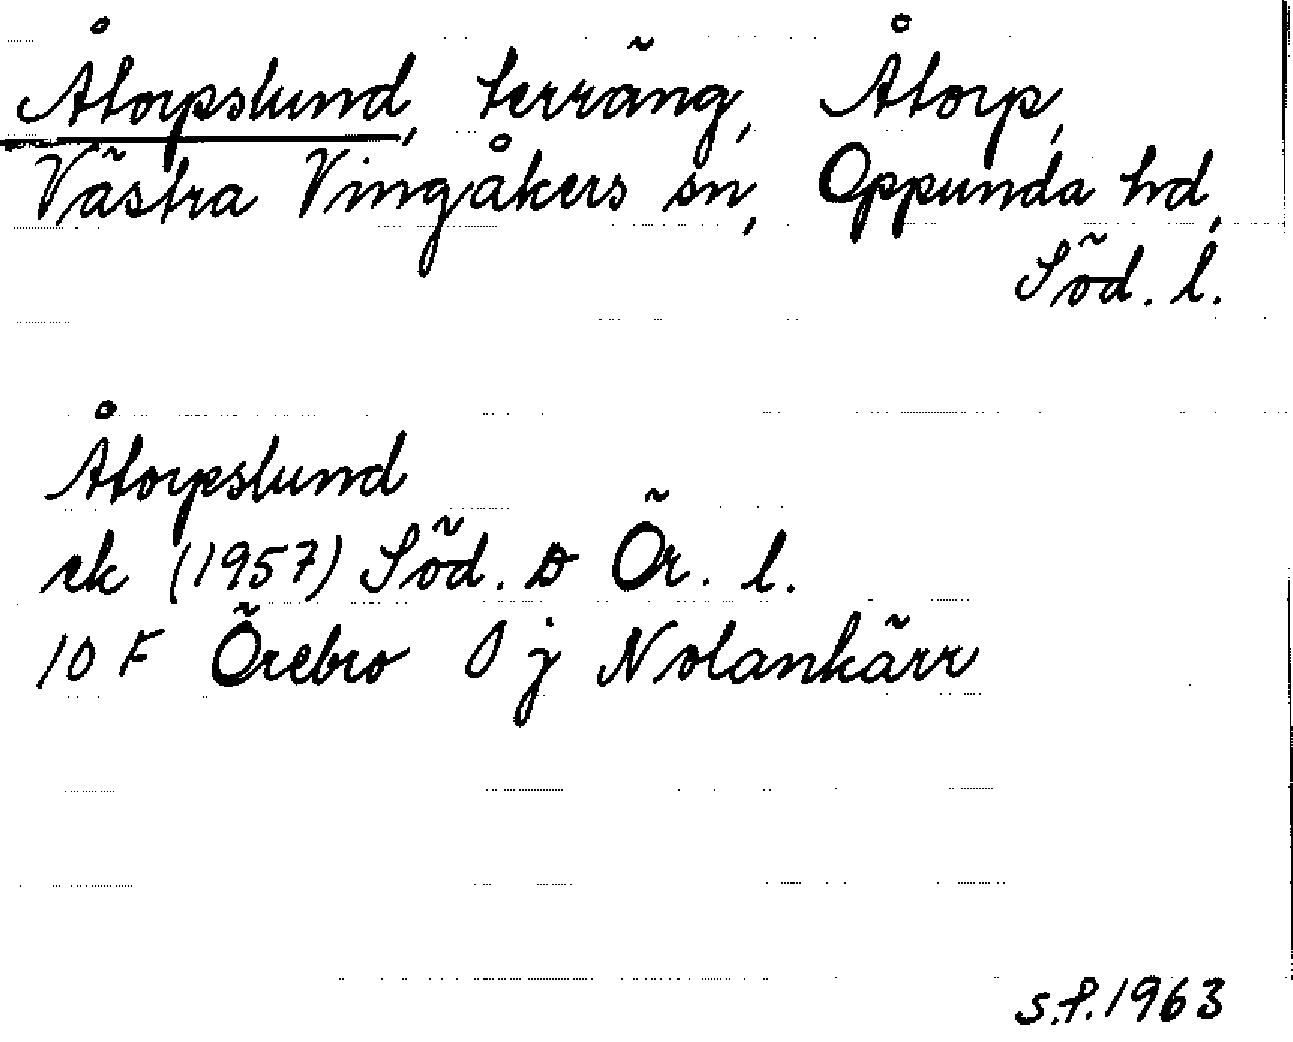 Åtorpslund, terräng, Åtorp,
Västra Vingåkers sn, Oppunda hd,
Söd. l.
Åtorpslund
ek (1957) Söd. o Ör. l.
10 F Örebro 0 j Nolankärr
s.f. 1963